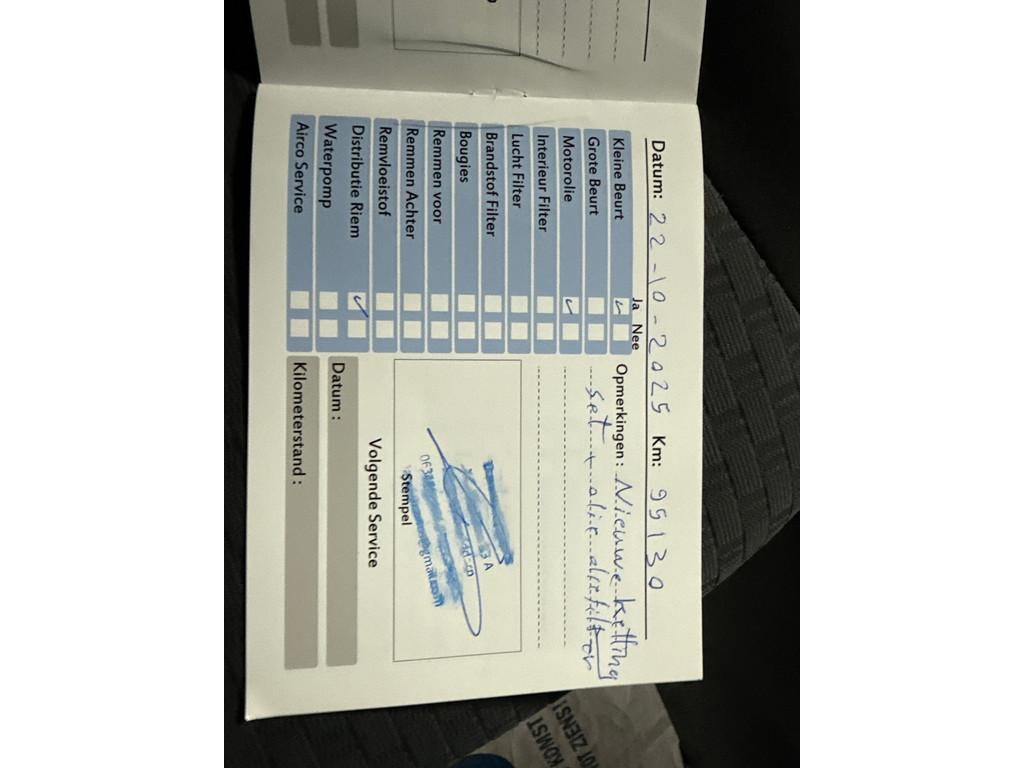 Datum: 22-10-2025 Km: 99130
Ja Nee
Kleine Beurt
Grote Beurt
Motorolie
Interieur Filter
Lucht Filter
Brandstof Filter
Bougies
Remmen voor
Remmen Achter
Remvloeistof
Distributie Riem
Waterpomp
Airco Service
Opmerkingen: Nieuwe ketting
set + olie oliefilter
Stempel
Volgende Service
Datum :
Kilometerstand :
KOMST
TOT ZIENS!